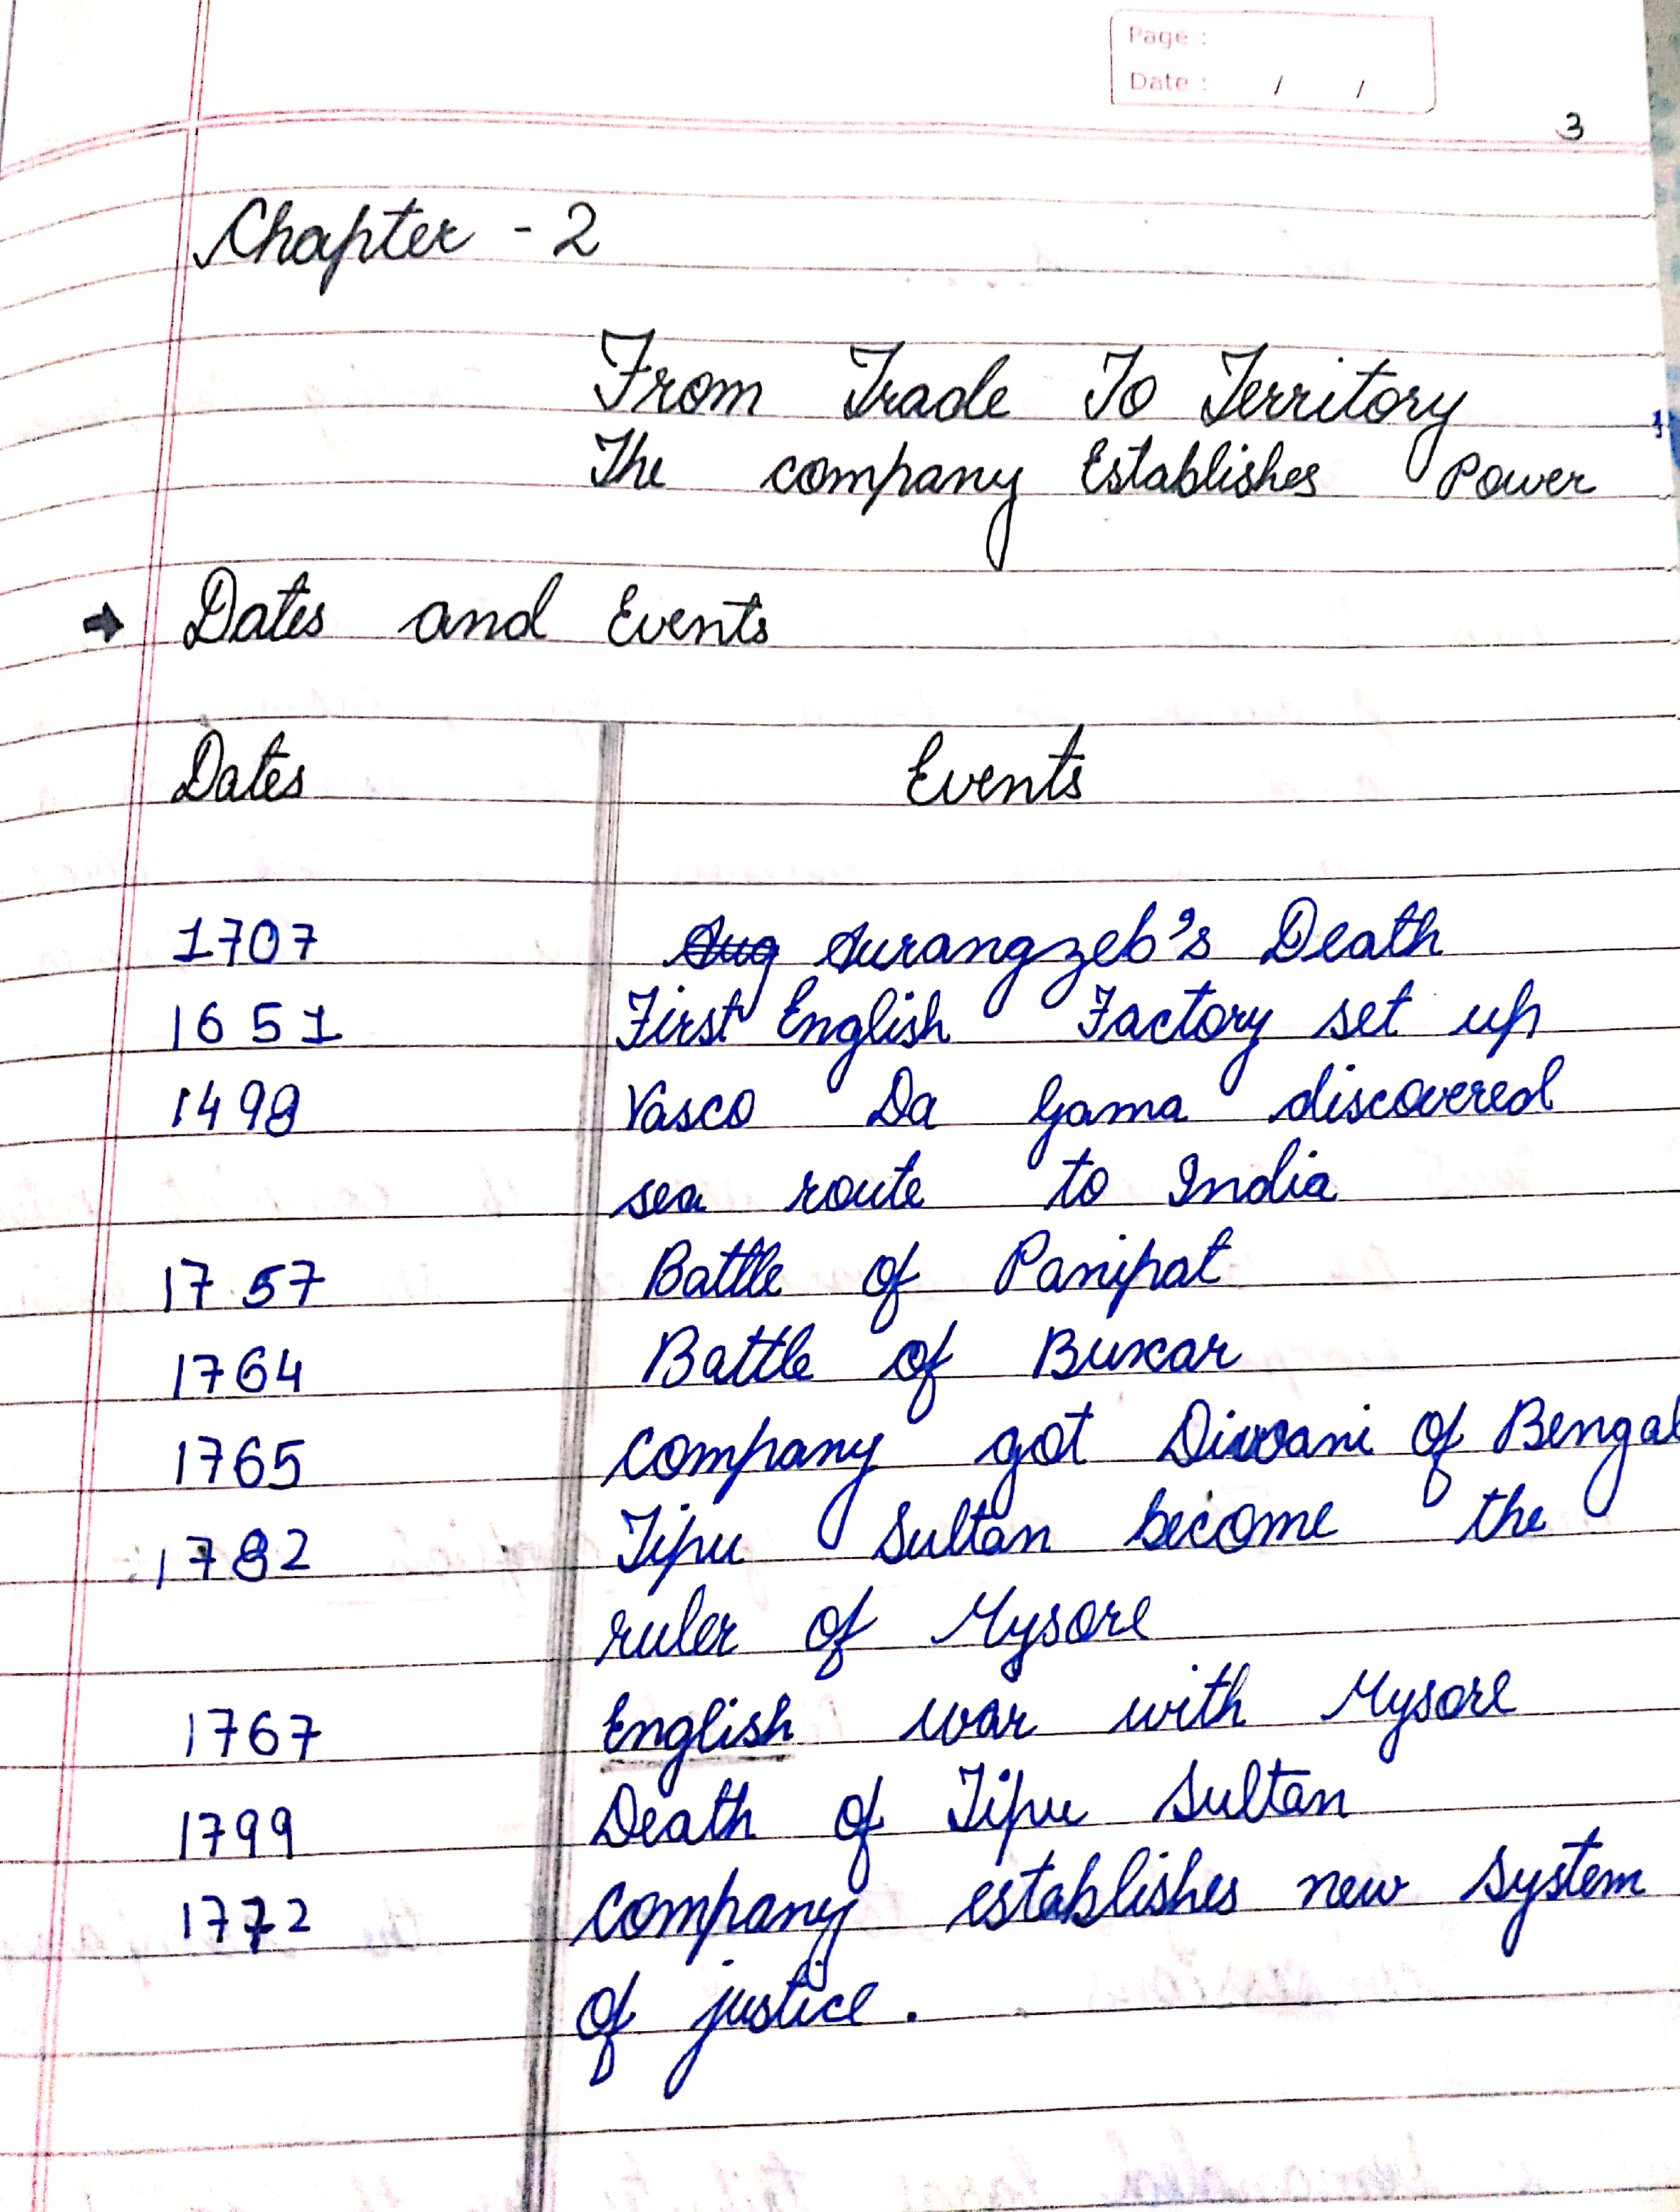 Page :
Date : / /
3
Chapter - 2
From Trade To Territory
The company Establishes Power
→ Dates and Events
Dates Events
1707 Aurangzeb's Death
1651 First English Factory set up
1498 Vasco Da Gama discovered
sea route to India
1757 Battle of Panipat
1764 Battle of Buxar
1765 Company got Diwani of Bengal
1782 Tipu Sultan become the
ruler of Mysore
1767 English war with Mysore
1799 Death of Tipu Sultan
1772 Company establishes new system
of justice.